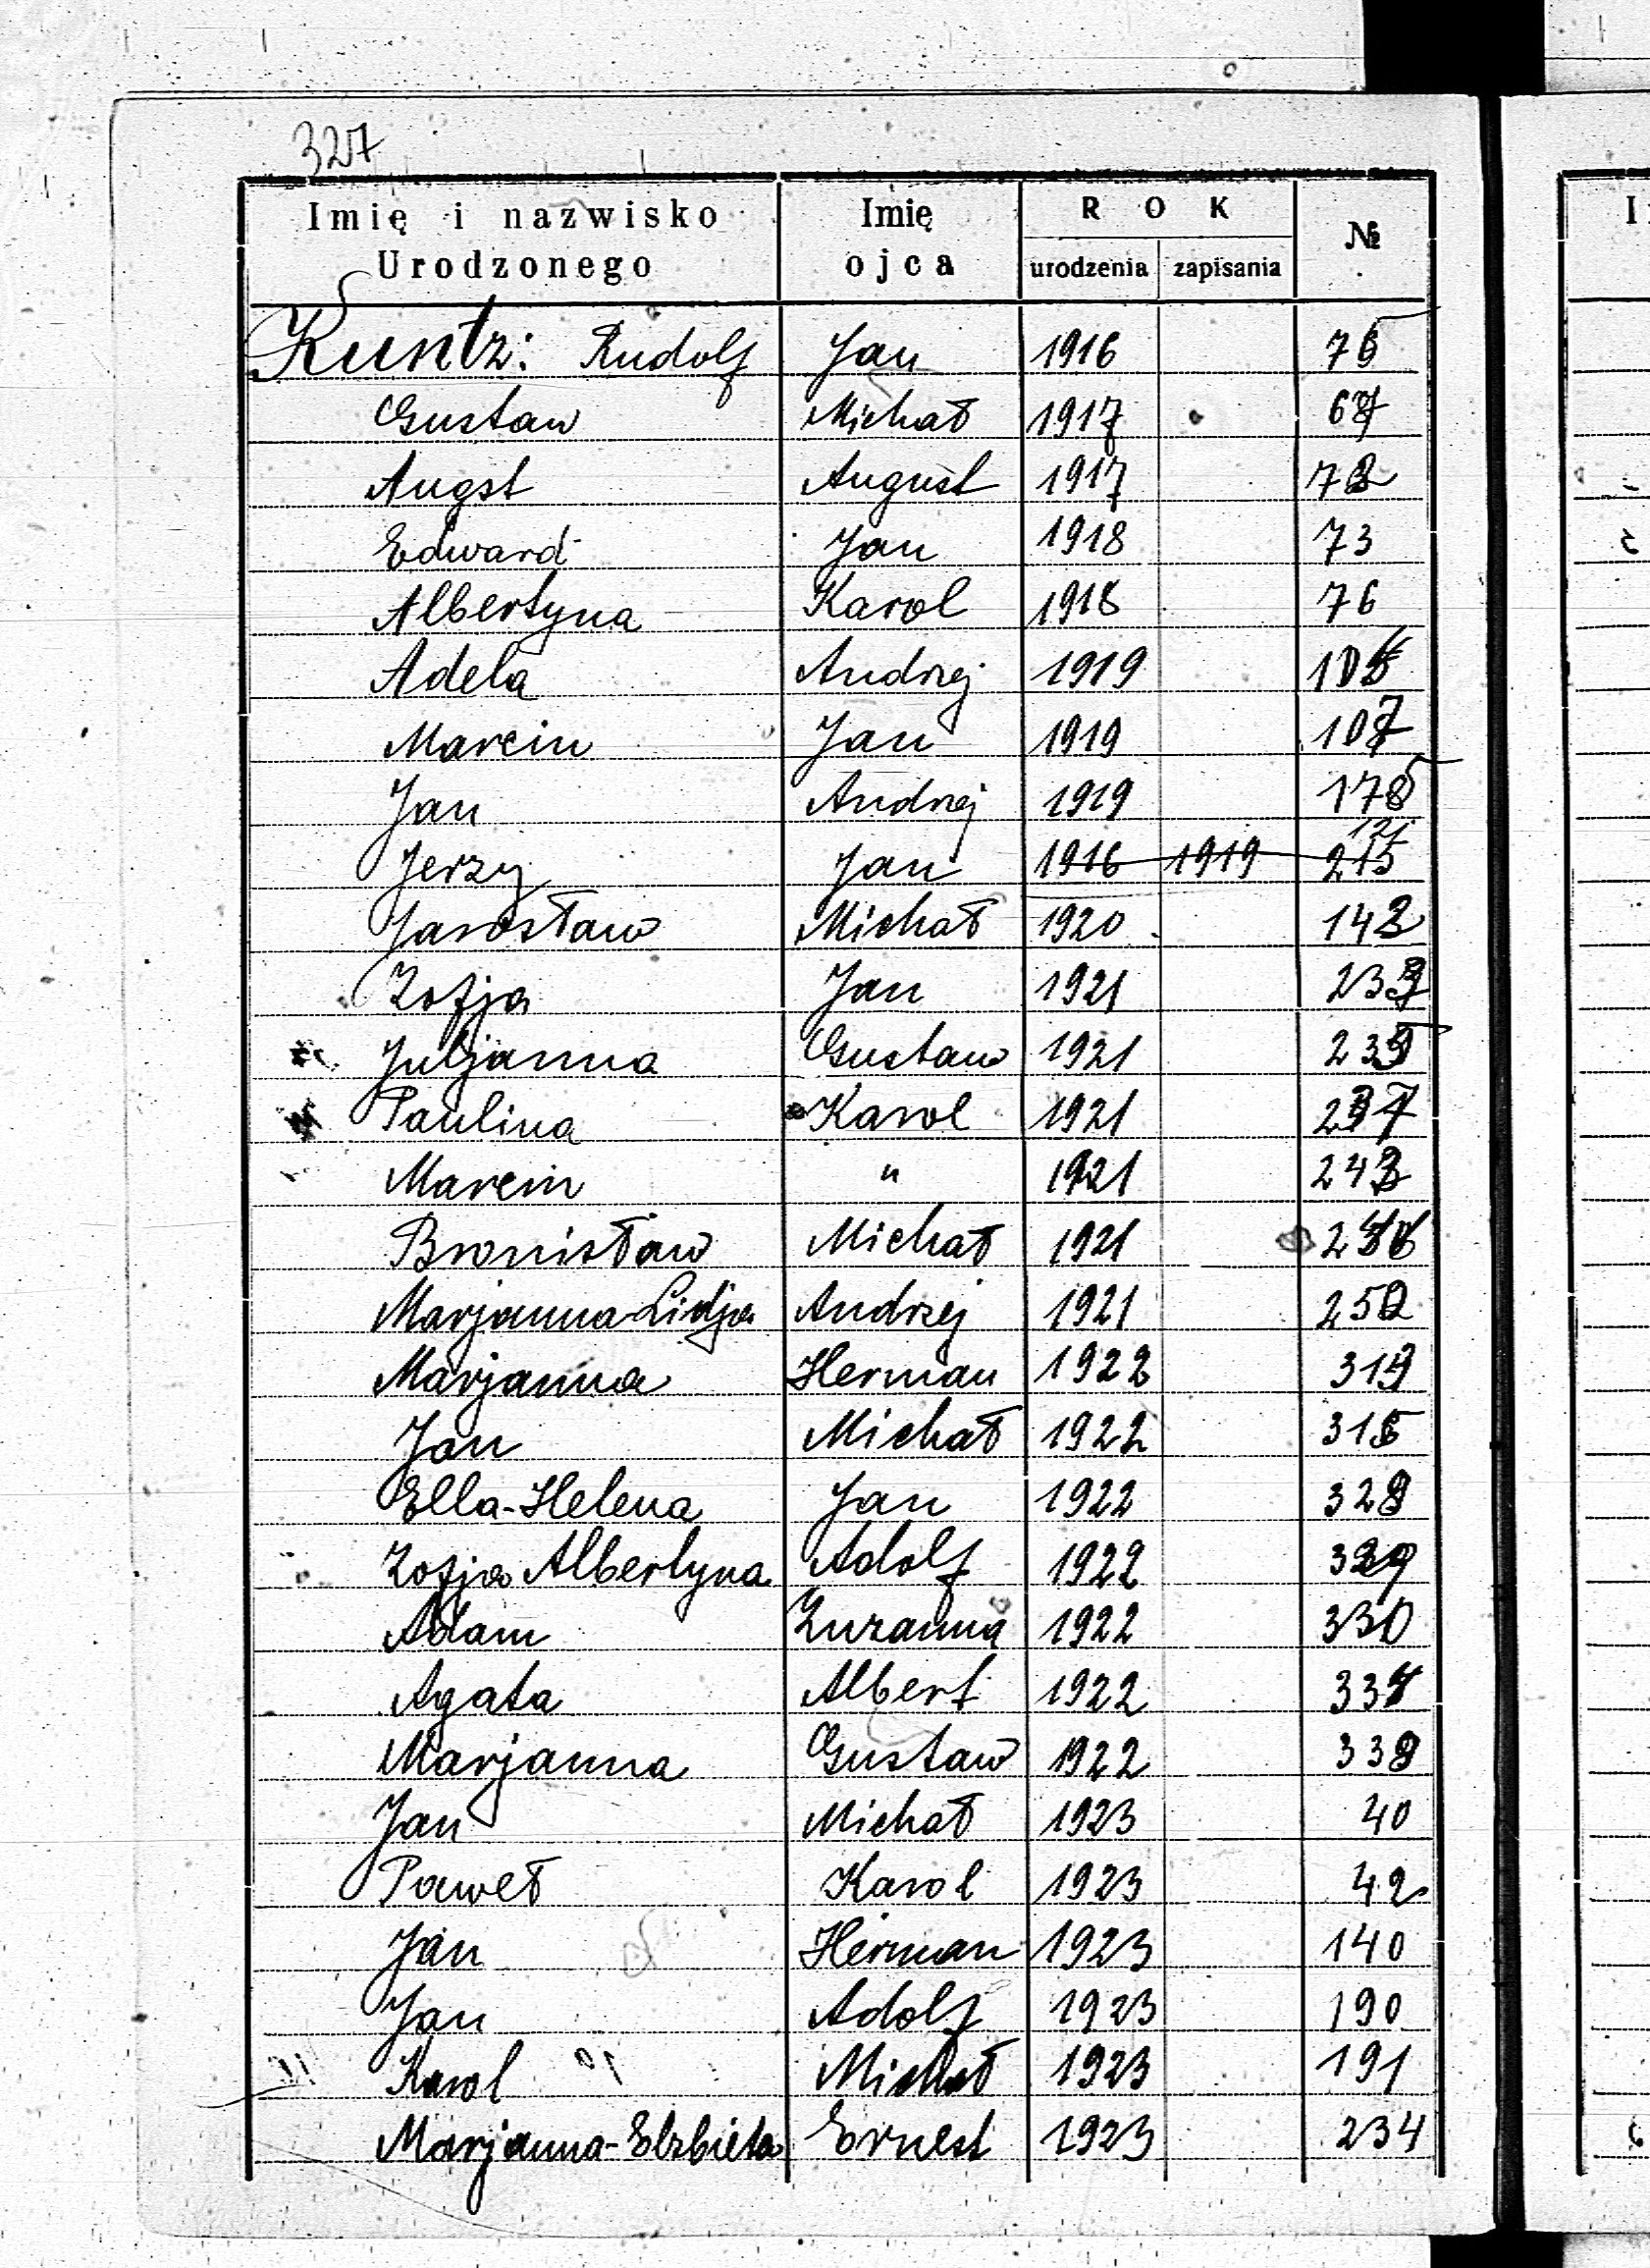 327
Imię i nazwisko Urodzonego Imię ojca ROK urodzenia zapisania №
Kuntz: Rudolf Jan 1916 75
Gustaw Michał 1917 67
Augst August 1917 72
Edward Jan 1918 73
Albertyna Karol 1918 76
Adela Andrzej 1919 104
Marcin Jan 1919 107
Jan Andrzej 1919 175
Jerzy Jan 1916 1919 215
Jarosław Michał 1920 142
Zofja Jan 1921 233
Juljanna Gustaw 1921 235
Paulina Karol 1921 237
Marcin " 1921 243
Bronisław Michał 1921
Marjanna-Lidja Andrzej 1921 252
Marjanna Herman 1922 319
Jan Michał 1922 315
Ella-Helena Jan 1922 328
Zofja Albertyna Adolf 1922 329
Adam Zuzanna 1922 330
Agata Albert 1922 334
Marjanna Gustaw 1922 338
Jan Michał 1923 40
Paweł Karol 1923 42
Jan Herman 1923 140
Jan Adolf 1923 190
Karol Michał 1923 191
Marjanna-Elzbieta Ernest 1923 234